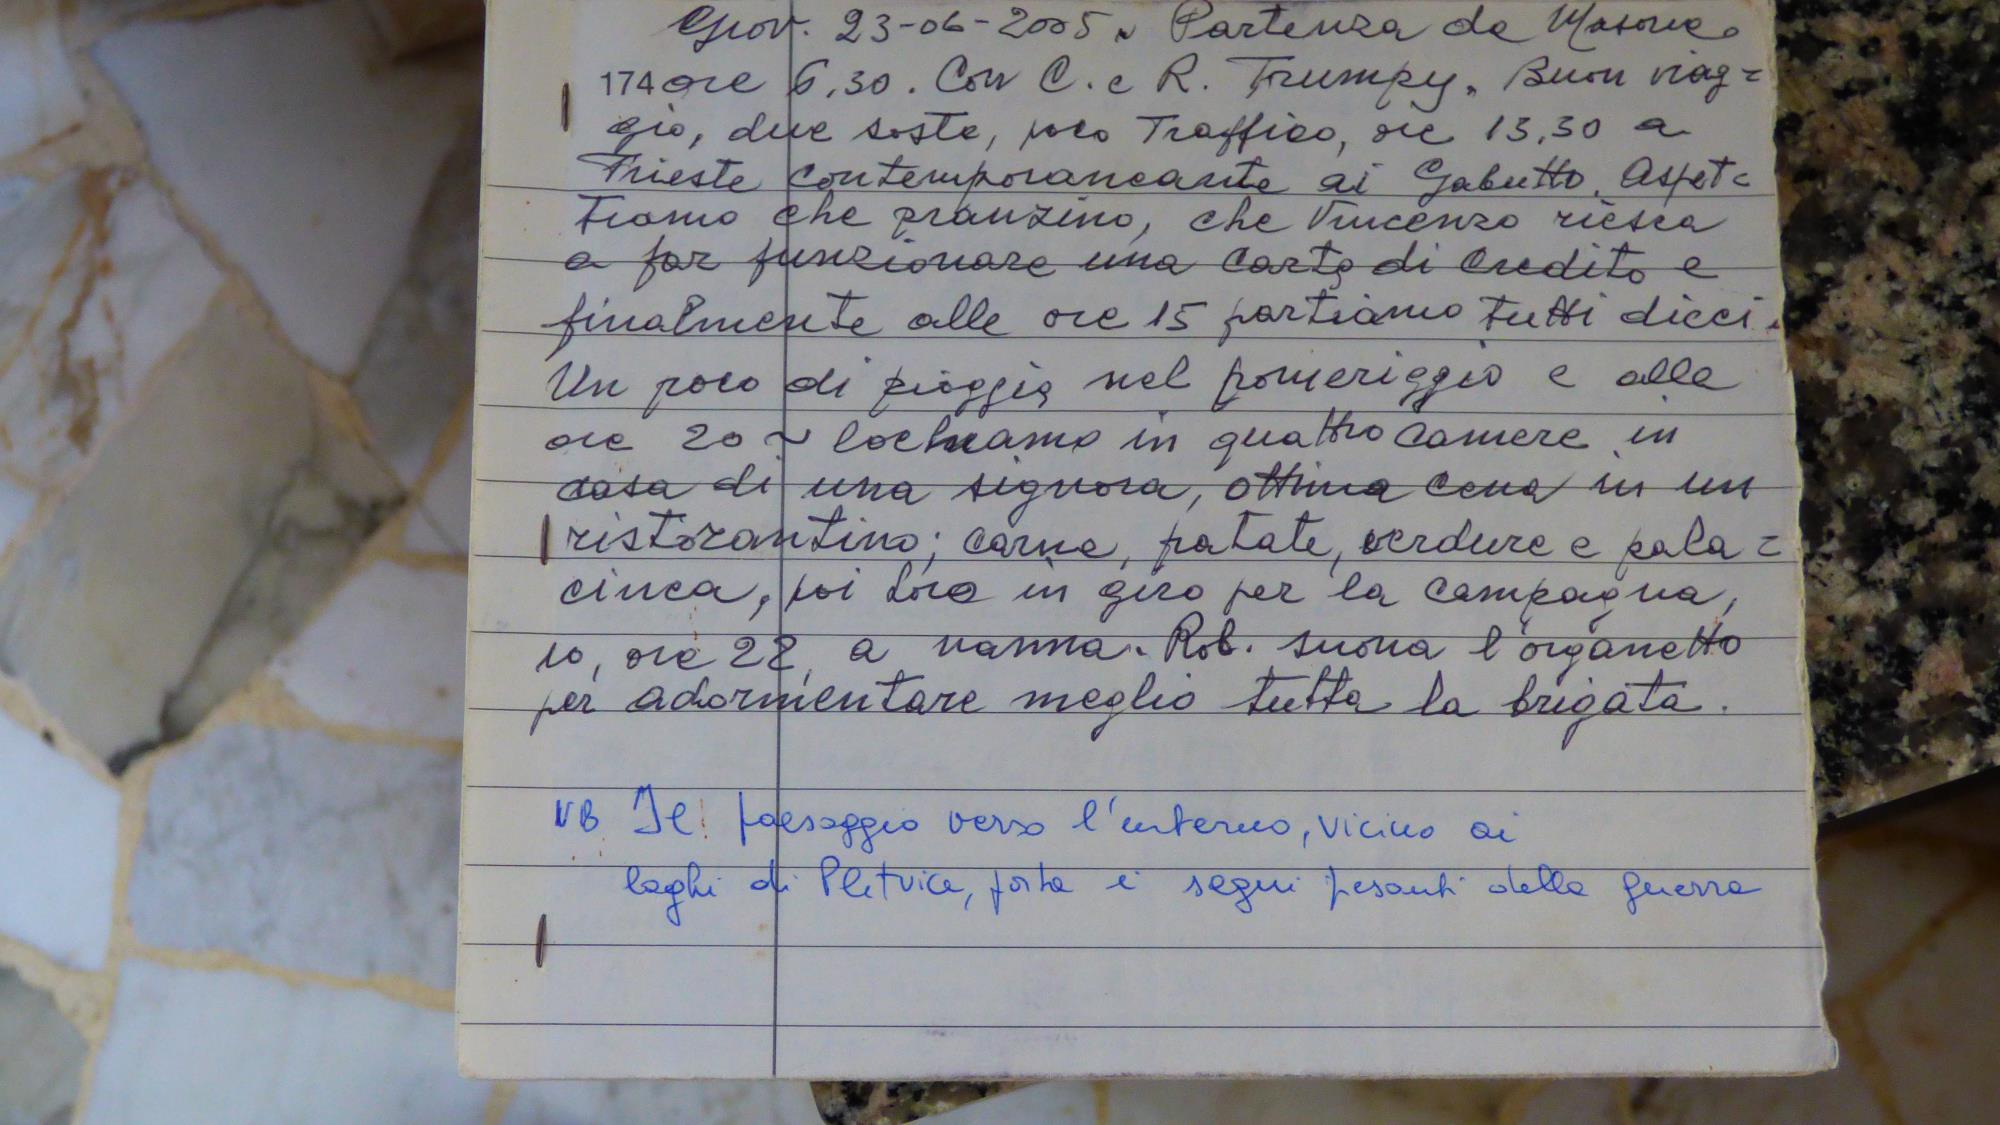 Giov. 23-06-2005 ~ Partenza da Masone
174 ore 6,30. Con C. e R. Trumpy. Buon viag=
gio, due soste, poco Traffico, ore 13,30 a
Trieste contemporaneante ai Gabutto. Aspet=
tiamo che pranzino, che Vincenzo riesca
a far funzionare una carta di credito e
finalmente alle ore 15 partiamo tutti dieci.
Un poco di pioggia nel pomeriggio e alle
ore 20 ~ lochiamo in quattro camere in
casa di una signora, ottima cena in un
ristorantino; carne, patate, verdure e pala=
cinca, poi loro in giro per la campagna,
io, ore 22, a nanna. Rob. suona l'organetto
per adormentare meglio tutta la brigata.
NB Il paesaggio verso l'interno, vicino ai
laghi di Plitvice, porta i segni pesanti della guerra